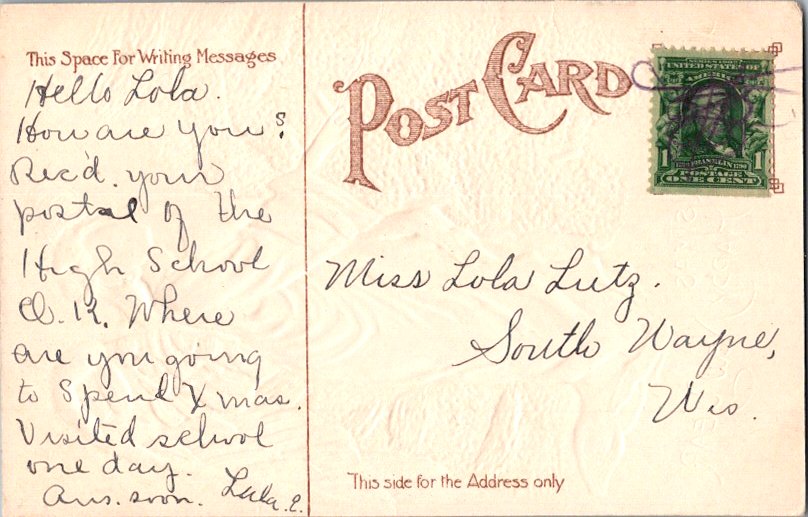 This Space For Writing Messages
Hello Lola.
How are you?
Rec'd. your
postal of the
High School
O.K. Where
are you going
to Spend Xmas.
Visited school
one day.
Ans. soon. Lula. E.
POST CARD
SERIES 1902
UNITED STATES OF
AMERICA
FRANKLIN
1 1
POSTAGE
ONE CENT
Miss Lola Lutz.
South Wayne,
Wis.
This side for the Address only